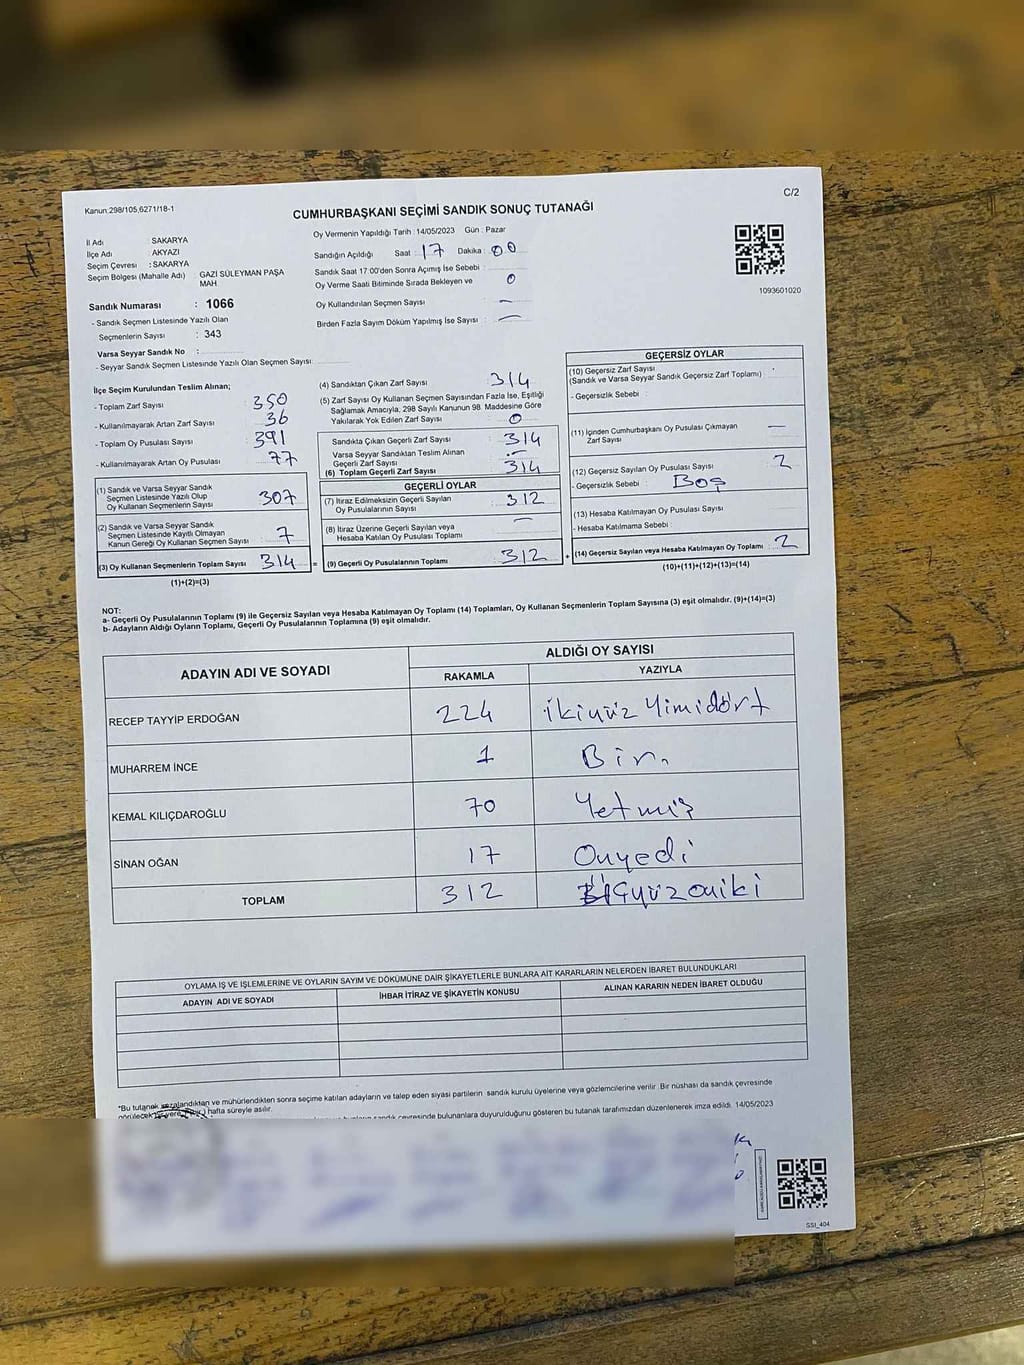 Kanun:298/105,6271/18-1
C/2
CUMHURBAŞKANI SEÇİMİ SANDIK SONUÇ TUTANAĞI
İl Adı : SAKARYA
İlçe Adı : AKYAZI
Seçim Çevresi : SAKARYA
Seçim Bölgesi (Mahalle Adı) : GAZİ SÜLEYMAN PAŞA
MAH.
Sandık Numarası : 1066
- Sandık Seçmen Listesinde Yazılı Olan
Seçmenlerin Sayısı : 343
Varsa Seyyar Sandık No :
- Seyyar Sandık Seçmen Listesinde Yazılı Olan Seçmen Sayısı:
Oy Vermenin Yapıldığı Tarih : 14/05/2023 Gün : Pazar
Sandığın Açıldığı Saat : 17 Dakika : 00
Sandık Saat 17:00'den Sonra Açımış İse Sebebi :
Oy Verme Saati Bitiminde Sırada Bekleyen ve 0
Oy Kullandırılan Seçmen Sayısı : —
Birden Fazla Sayım Döküm Yapılmış İse Sayısı : —
1093601020
İlçe Seçim Kurulundan Teslim Alınan;
- Toplam Zarf Sayısı : 350
- Kullanılmayarak Artan Zarf Sayısı : 36
- Toplam Oy Pusulası Sayısı : 391
- Kullanılmayarak Artan Oy Pusulası : 77
(1) Sandık ve Varsa Seyyar Sandık
Seçmen Listesinde Yazılı Olup
Oy Kullanan Seçmenlerin Sayısı : 307
(2) Sandık ve Varsa Seyyar Sandık
Seçmen Listesinde Kayıtlı Olmayan
Kanun Gereği Oy Kullanan Seçmen Sayısı : 7
(3) Oy Kullanan Seçmenlerin Toplam Sayısı : 314
(1)+(2)=(3)
=
(4) Sandıktan Çıkan Zarf Sayısı : 314
(5) Zarf Sayısı Oy Kullanan Seçmen Sayısından Fazla İse, Eşitliği
Sağlamak Amacıyla; 298 Sayılı Kanunun 98. Maddesine Göre
Yakılarak Yok Edilen Zarf Sayısı : 0
Sandıkta Çıkan Geçerli Zarf Sayısı : 314
Varsa Seyyar Sandıktan Teslim Alınan
Geçerli Zarf Sayısı : —
(6) Toplam Geçerli Zarf Sayısı : 314
GEÇERLİ OYLAR
(7) İtiraz Edilmeksizin Geçerli Sayılan
Oy Pusulalarının Sayısı : 312
(8) İtiraz Üzerine Geçerli Sayılan veya
Hesaba Katılan Oy Pusulası Toplamı : —
(9) Geçerli Oy Pusulalarının Toplamı : 312
+
GEÇERSİZ OYLAR
(10) Geçersiz Zarf Sayısı :
(Sandık ve Varsa Seyyar Sandık Geçersiz Zarf Toplamı)
- Geçersizlik Sebebi :
(11) İçinden Cumhurbaşkanı Oy Pusulası Çıkmayan —
Zarf Sayısı
(12) Geçersiz Sayılan Oy Pusulası Sayısı : 2
- Geçersizlik Sebebi : Boş
(13) Hesaba Katılmayan Oy Pusulası Sayısı :
- Hesaba Katılmama Sebebi :
(14) Geçersiz Sayılan veya Hesaba Katılmayan Oy Toplamı : 2
(10)+(11)+(12)+(13)=(14)
NOT:
a- Geçerli Oy Pusulalarının Toplamı (9) ile Geçersiz Sayılan veya Hesaba Katılmayan Oy Toplamı (14) Toplamları, Oy Kullanan Seçmenlerin Toplam Sayısına (3) eşit olmalıdır. (9)+(14)=(3)
b- Adayların Aldığı Oyların Toplamı, Geçerli Oy Pusulalarının Toplamına (9) eşit olmalıdır.
ADAYIN ADI VE SOYADI
ALDIĞI OY SAYISI
RAKAMLA YAZIYLA
RECEP TAYYİP ERDOĞAN 224 ikiyüz Yimidört
MUHARREM İNCE 1 Bir.
KEMAL KILIÇDAROĞLU 70 Yetmiş
SİNAN OĞAN 17 Onyedi
TOPLAM 312 üçyüzoniki
OYLAMA İŞ VE İŞLEMLERİNE VE OYLARIN SAYIM VE DÖKÜMÜNE DAİR ŞİKAYETLERLE BUNLARA AİT KARARLARIN NELERDEN İBARET BULUNDUKLARI
ADAYIN ADI VE SOYADI İHBAR İTİRAZ VE ŞİKAYETİN KONUSU ALINAN KARARIN NEDEN İBARET OLDUĞU
*Bu tutanak imzalandıktan ve mühürlendikten sonra seçime katılan adayların ve talep eden siyasi partilerin sandık kurulu üyelerine veya gözlemcilerine verilir. Bir nüshası da sandık çevresinde
hafta süreyle asılır.
sandık çevresinde bulunanlara duyurulduğunu gösteren bu tutanak tarafımızdan düzenlenerek imza edildi. 14/05/2023
SSİ_404